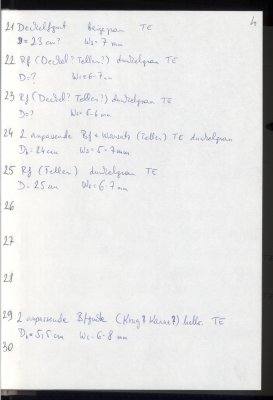 4
21 Deckelfgmt beigegrau TE
D = 23 cm? Ws = 7 mm
22 Rf (Deckel? Teller?) dunkelgrau TE
D = ? Ws = 6-7 mm
23 Rf (Deckel? Teller?) dunkelgrau TE
D = ? Ws = 5-6 mm
24 2 anpassende Bf + Wansatz (Teller) TE dunkelgrau
Db = 24 cm Ws = 5-7 mm
25 Rf (Teller) dunkelgrau TE
D = 25 cm Ws = 6-7 mm
26
27
28
29 2 anpassende (Krug? Kanne?) TE
Db = 5,5 cm Ws = 6-8 mm
30